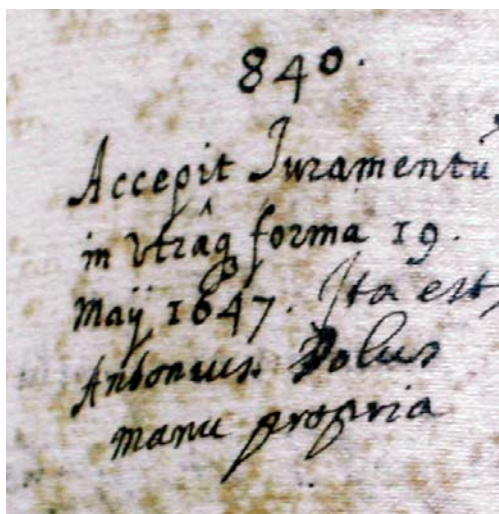 840.
Accepit Juramentũ
in vtrâq forma 19.
Maÿ 1647. Ita est
Antonius Polus
manu propria